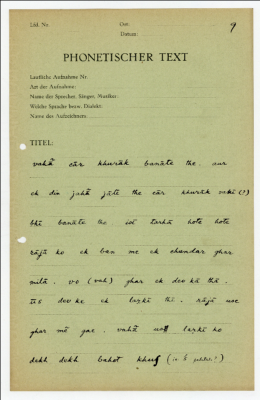 Lfd. Nr.
Ort:
Datum:
9
PHONETISCHER TEXT
Lautliche Aufnahme Nr.
Art der Aufnahme:
Name des Sprecher, Sänger, Musiker:
Welche Sprache bezw. Dialekt:
Name des Aufzeichners:
TITEL:
vahā cār khurāk banāte the. aur
ek din jahā jāte the cār khurāk vahī (?)
bhī banāte the. isī tarhā hote hote
rājā ko ek ban me ek chandar ghar
milā. vo (vah) ghar ek deo kā thā.
us dev ke ek laṛkī thī. rājā use
ghar mē gae. vahā us laṛkī ko
dekh dekh bahot khuś